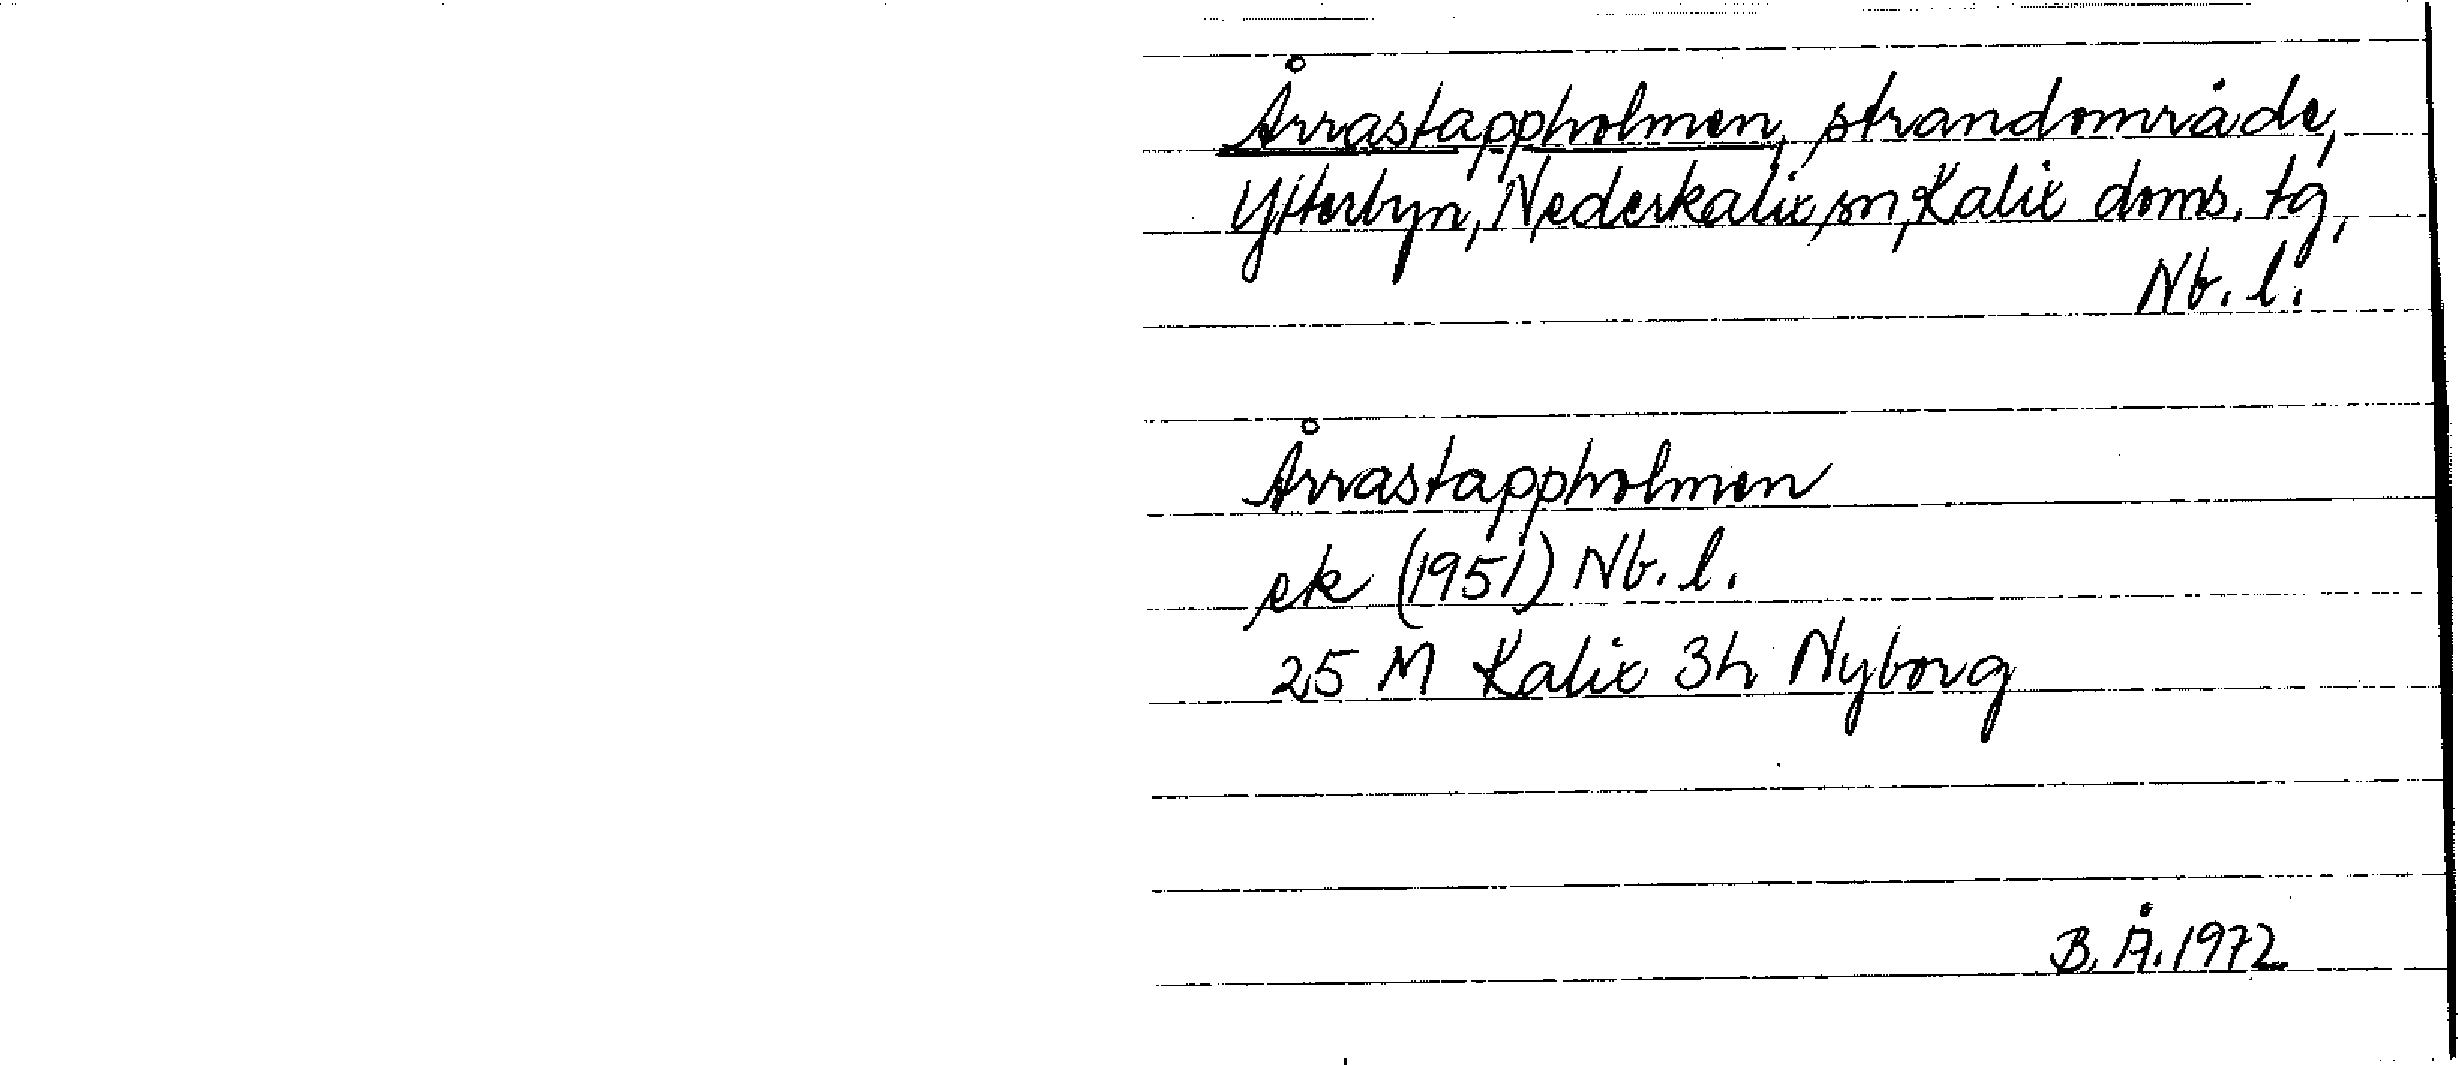 Årrastappholmen, strandområde,
Ytterbyn, Nederkalix sn, Kalix doms. tg,
Nb. l.
Årrastappholmen
ek (1951) Nb. l.
25 M Kalix 3h Nyborg
B. Å. 1972